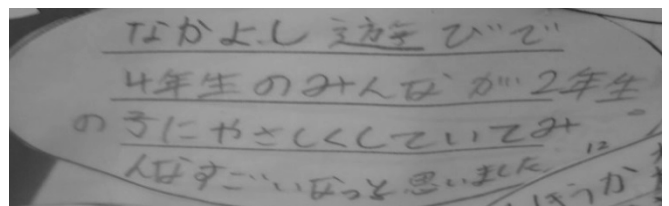 なかよし遊びで
4年生のみんなが2年生
の子にやさしくしていてみ
んなすごいなっと思いました
ほうか